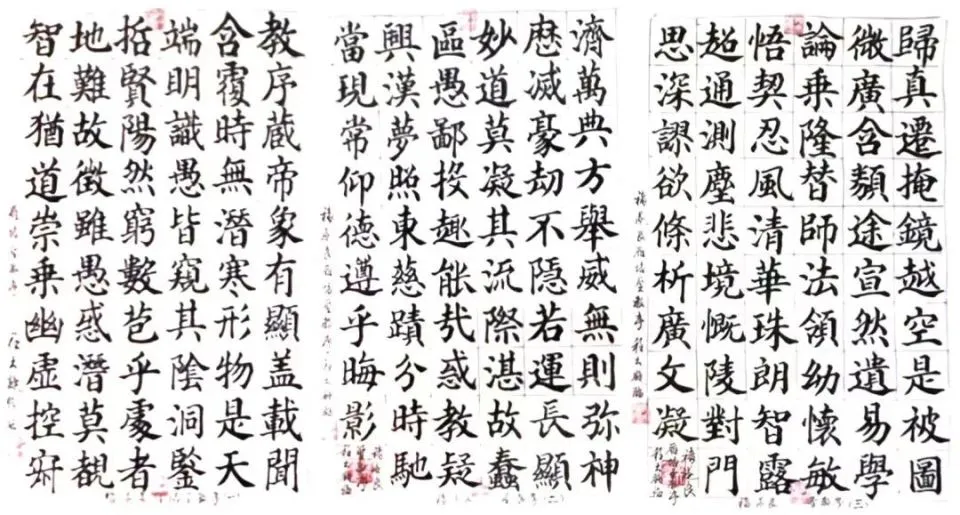 教序蔵帝象有顯盖載聞
含覆時無潛寒形物是天
端明識愚皆窺其陰洞鑒
哲賢陽然窮數苞乎處者
地難故徵雖愚惑潛莫覩
智在猶道崇乗幽虛控寂
(一)
濟萬典方舉威無則弥神
歷滅豪劫不隱若運長顯
妙道莫凝其流際湛故蠢
區愚鄙投趣能哉惑教疑
興漢夢照東慈蹟分時馳
當現常仰德遵乎晦影
(二)
歸真遷掩鏡越空是被圖
微廣含類途宣然遺易學
論乗隆替師法領幼懷敏
悟契忍風清華珠朗智露
超通測塵悲境慨陵對門
思深謬欲條析廣文凝
褚遂良雁塔聖教序
(三)